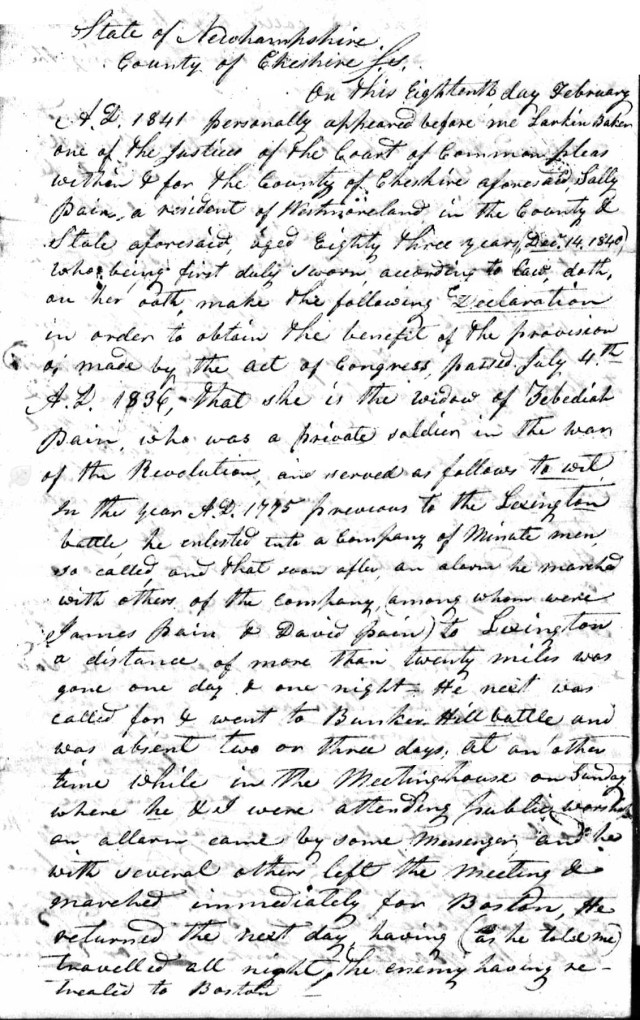 State of Newhampshire
County of Cheshire Ss.
On this Eighteenth day February
A.D. 1841 personally appeared before me Larkin Baker
one of the Justices of the Court of Common pleas
within & for the County of Cheshire aforesaid, Sally
Pain, a resident of Westmoreland, in the County &
State aforesaid, aged Eighty three years, Dec. 14. 1840,
who being first duly sworn, according to law, doth,
on her oath, make the following Declaration
in order to obtain the benefit of the provision
made by the act of Congress, passed July 4th
A.D. 1836, That she is the widow of Zebediah
Pain, who was a private soldier in the war
of the Revolution, and served as follows to wit,
In the year A.D. 1775 previous to the Lexington
battle, he enlisted into a Company of Minute men,
so called, and that soon after, an alarm he marched
with others of the company, (among whom were
James Pain & David Pain) to Lexington
a distance of more than twenty miles was
gone one day & one night - He next was
called for & went to Bunker-Hill battle and
was absent two or three days, at an other
time while in the Meetinghouse on Sunday
where he & I were attending public worship
an allarm came by some Messenger, and he
with several others, left the Meeting &
marched immediately for Boston, He
returned the next day, having (as he told me)
travelled all night, the enemy having re-
treated to Boston